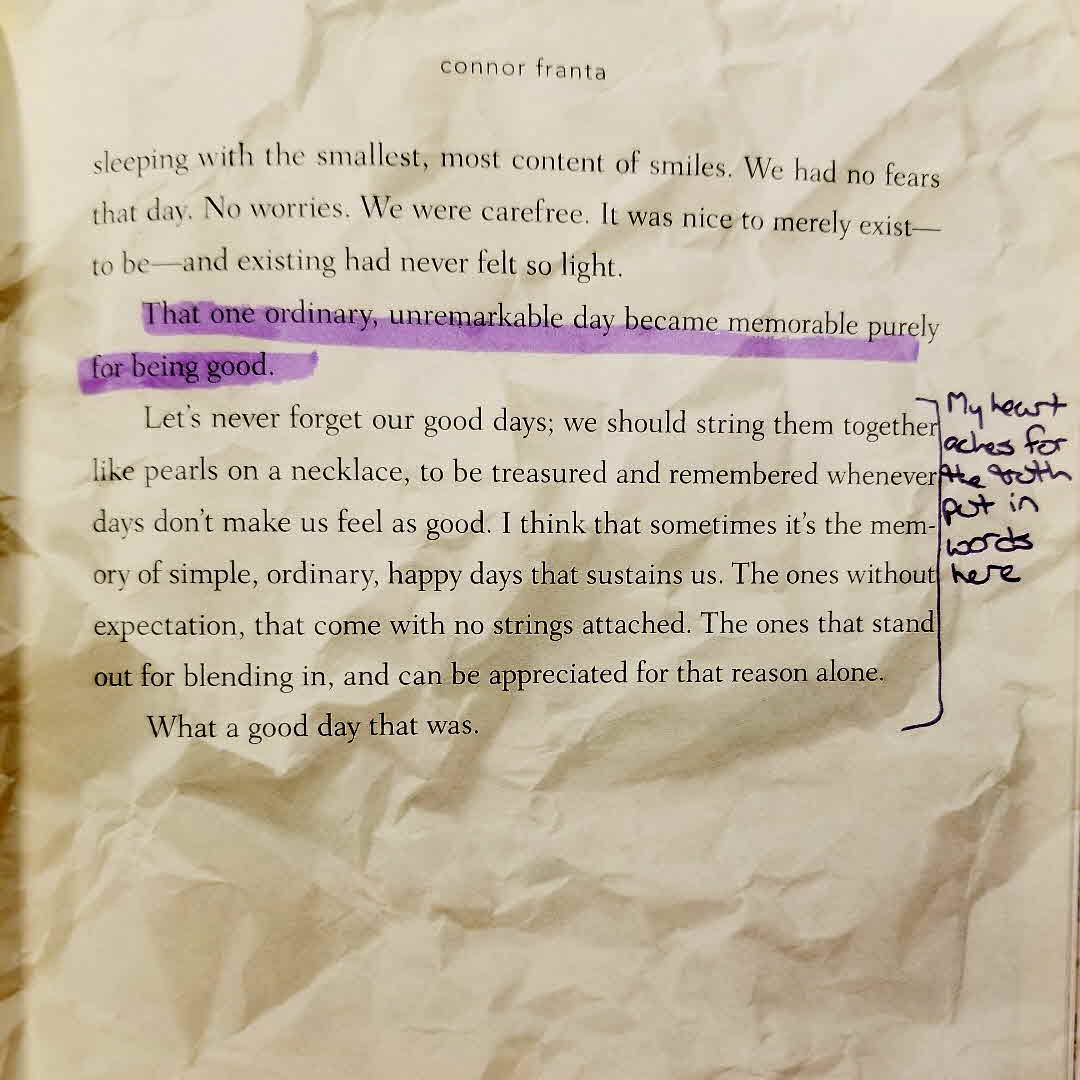 connor franta
sleeping with the smallest, most content of smiles. We had no fears
that day. No worries. We were carefree. It was nice to merely exist—
to be—and existing had never felt so light.
That one ordinary, unremarkable day became memorable purely
for being good.
Let's never forget our good days; we should string them together
like pearls on a necklace, to be treasured and remembered whenever
days don't make us feel as good. I think that sometimes it's the mem-
ory of simple, ordinary, happy days that sustains us. The ones without
expectation, that come with no strings attached. The ones that stand
out for blending in, and can be appreciated for that reason alone.
What a good day that was.
My heart
aches for
the truth
put in
words
here